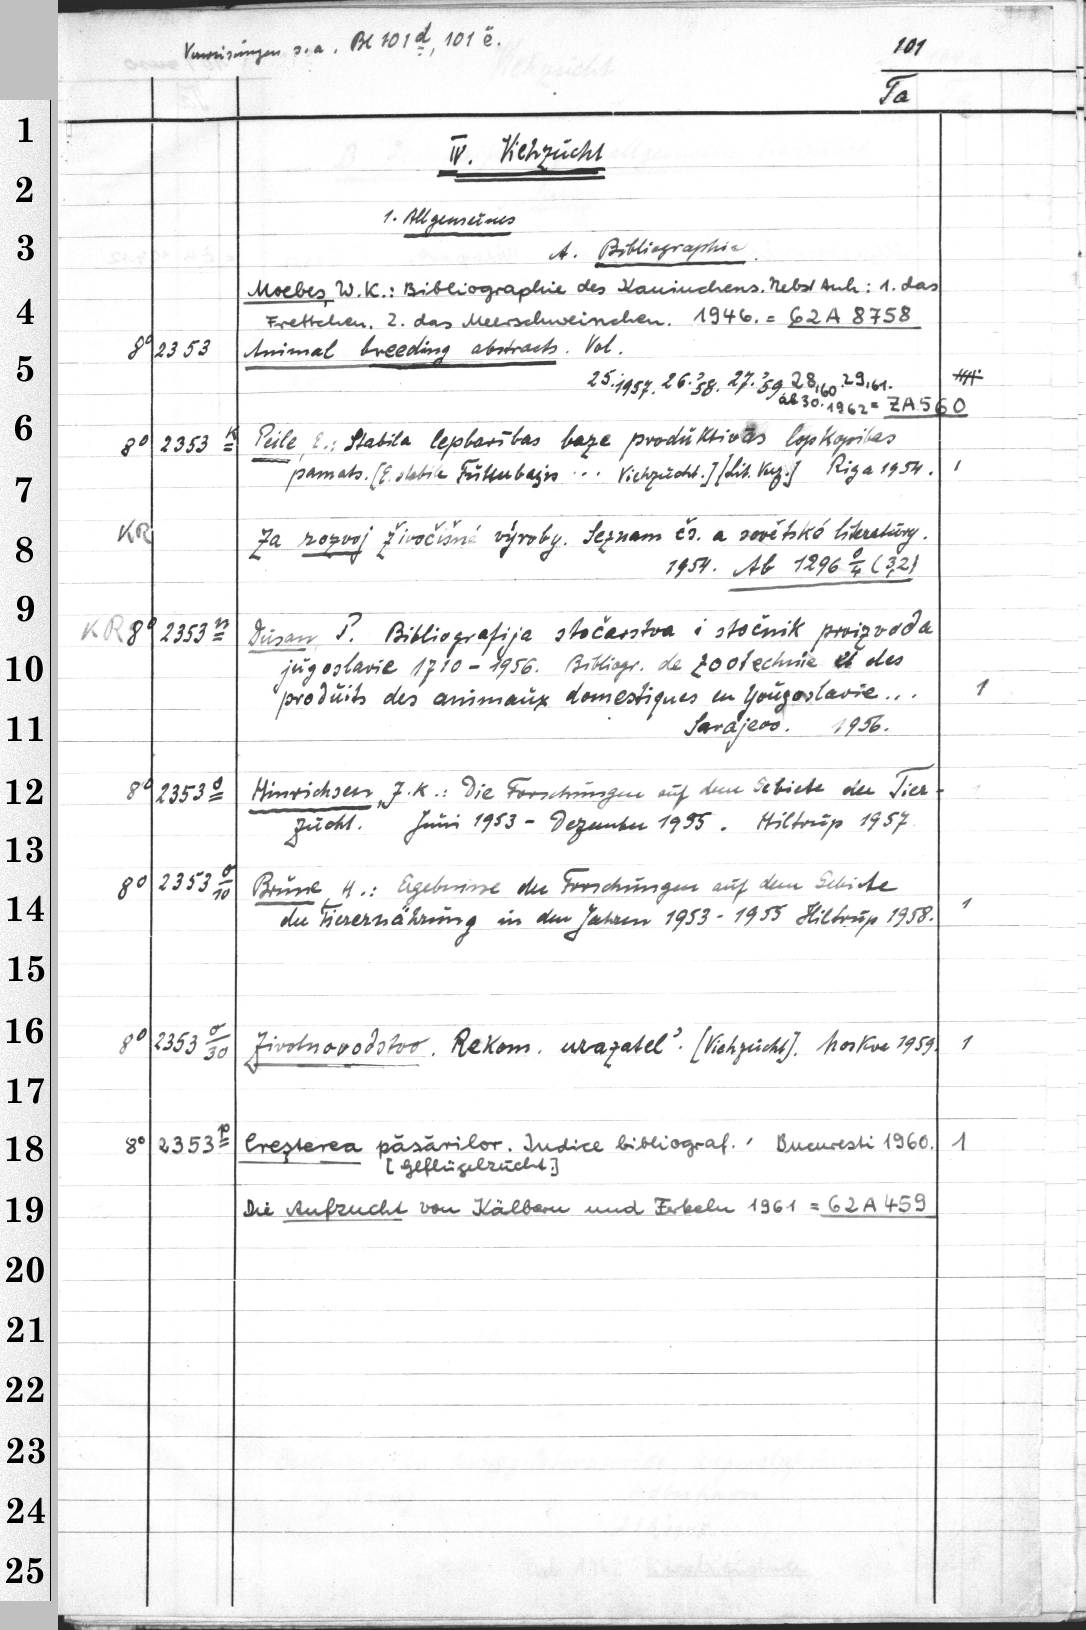 Verweisungen s.a. Bl 101 d, 101 e.
101
Ta
1
IV. Viehzucht
2
1. Allgemeines
3
A. Bibliographie.
Moebes, W.K.: Bibliographie des Kaninchens. Nebst Anh: 1. das
4
Frettchen. 2. das Meerschweinchen. 1946. = 62 A 8758
8° 2353 Animal breeding abstracts. Vol.
5
25.1957. 26.'58. 27.'59 28,60. 29,61.
ab 30.1962 = ZA 560
6
8° 2353 k Peile, E.: Stabila lopbarības baze produktivās lopkopības
pamats. [E. stabile Futterbasis ... Viehzucht.] [Lit. Verz.] Riga 1954. 1
7
KR Za rozvoj živočišné výroby. Seznam čs. a sovětské literatury.
8
1954. Ab 1296 o/4 (3,2)
9
KR 8° 2353 n Dusan, P. Bibliografija stočarstva i stočnik proizvoda
10
jugoslavie 1710 - 1956. Bibliogr. de zootechnie et des
produits des animaux domestiques en Yougoslavie ... 1
11
Sarajevo. 1956.
12
8° 2353 o Hinrichsen, J.K.: Die Forschungen auf dem Gebiete der Tier- 1
zucht. Juni 1953 - Dezember 1955. Hiltrup 1957
13
8° 2353 o/10 Brüne, H.: Ergebnisse der Forschungen auf dem Gebiete
14
der Tierernährung in den Jahren 1953 - 1955 Hiltrup 1958. 1
15
16
8° 2353 o/30 Životnovodstvo. Rekom. ukazatel'. [Viehzucht]. Moskva 1959. 1
17
18
8° 2353 p Creşterea păsărilor. Indice bibliograf. Bucuresti 1960. 1
[Geflügelzucht]
19
Die Aufzucht von Kälbern und Ferkeln 1961 = 62 A 459
20
21
22
23
24
25